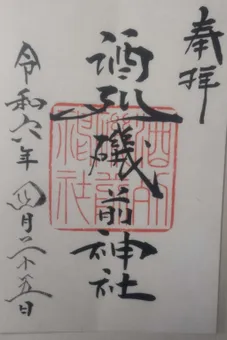 奉拝
酒列磯前神社
令和六年四月二十五日
酒列
磯前
神社